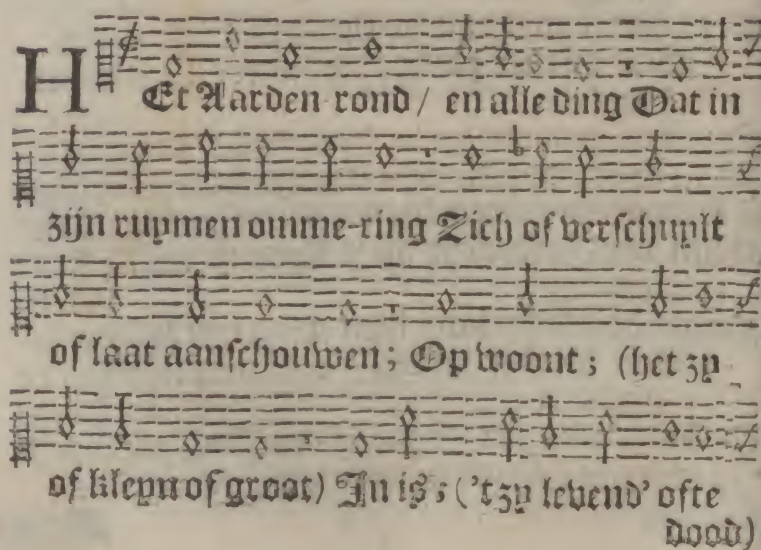 HEt Aarden rond / en alle ding Dat in
zijn ruymen omme-ring Zich of verschuylt
of laat aanschouwen; Op woont; (het zy
of kleyn of groot) In is; ('t zy levend' ofte
dood)